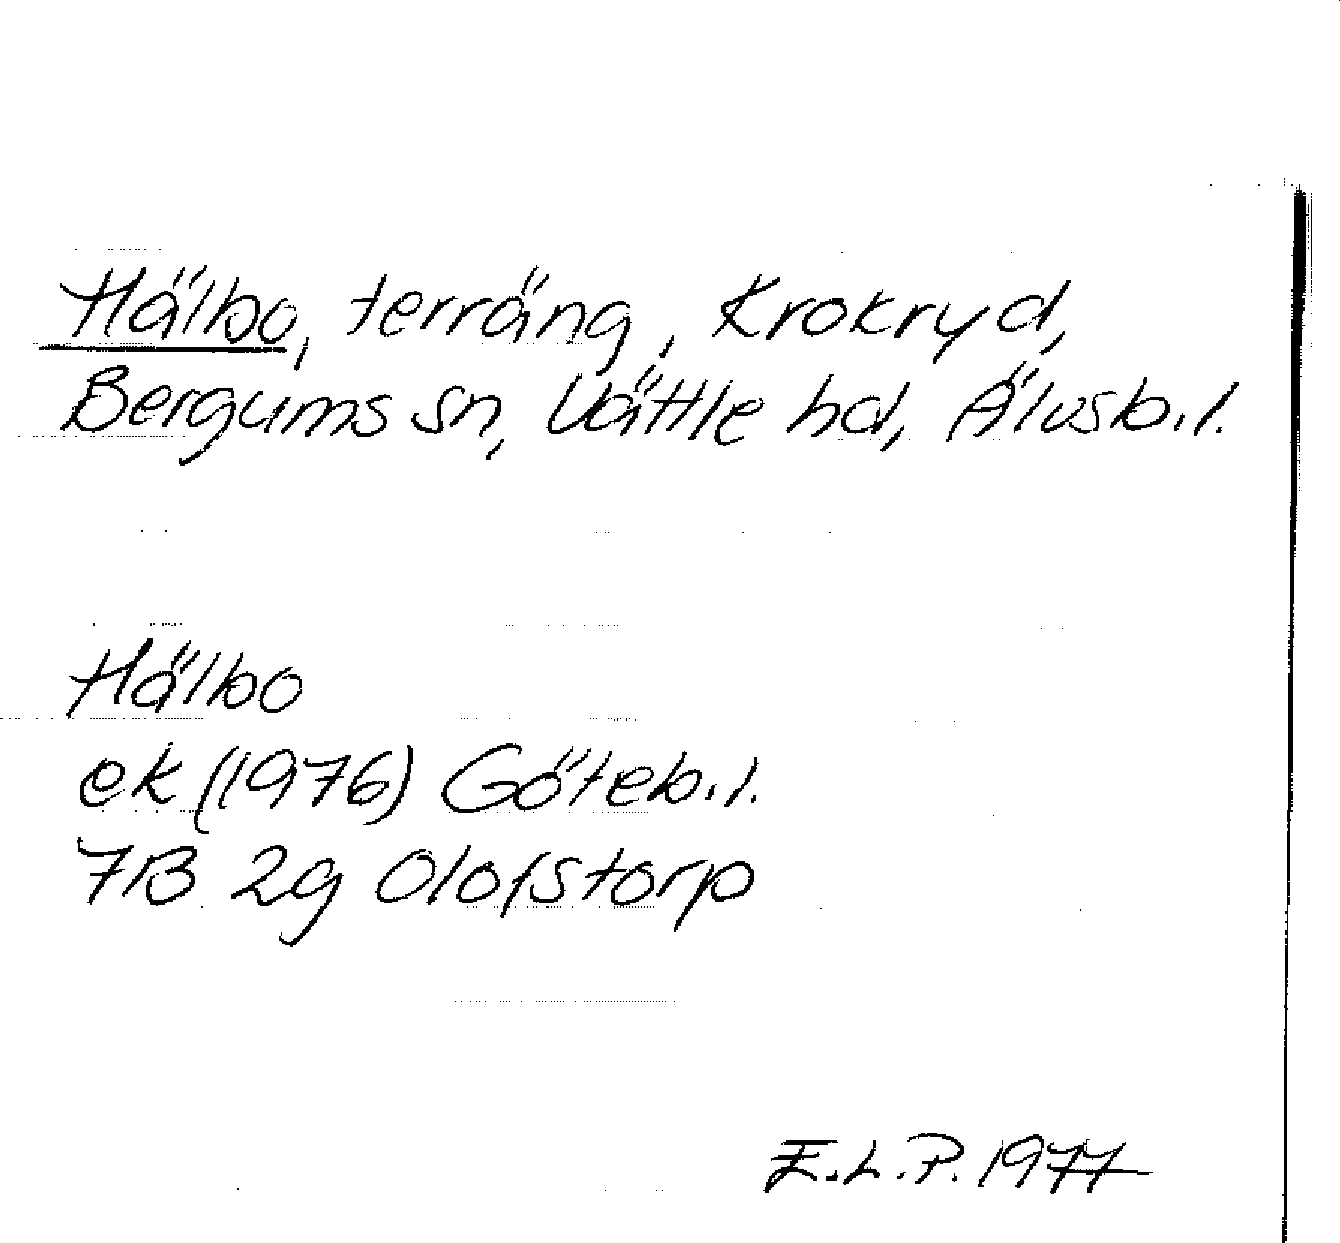 Hälbo, terräng, Krokryd,
Bergums sn, Vättle hd, Älvsb.l.
Hälbo
ek (1976) Göteb.l.
7B 2g Olofstorp
E.L.P. 1977